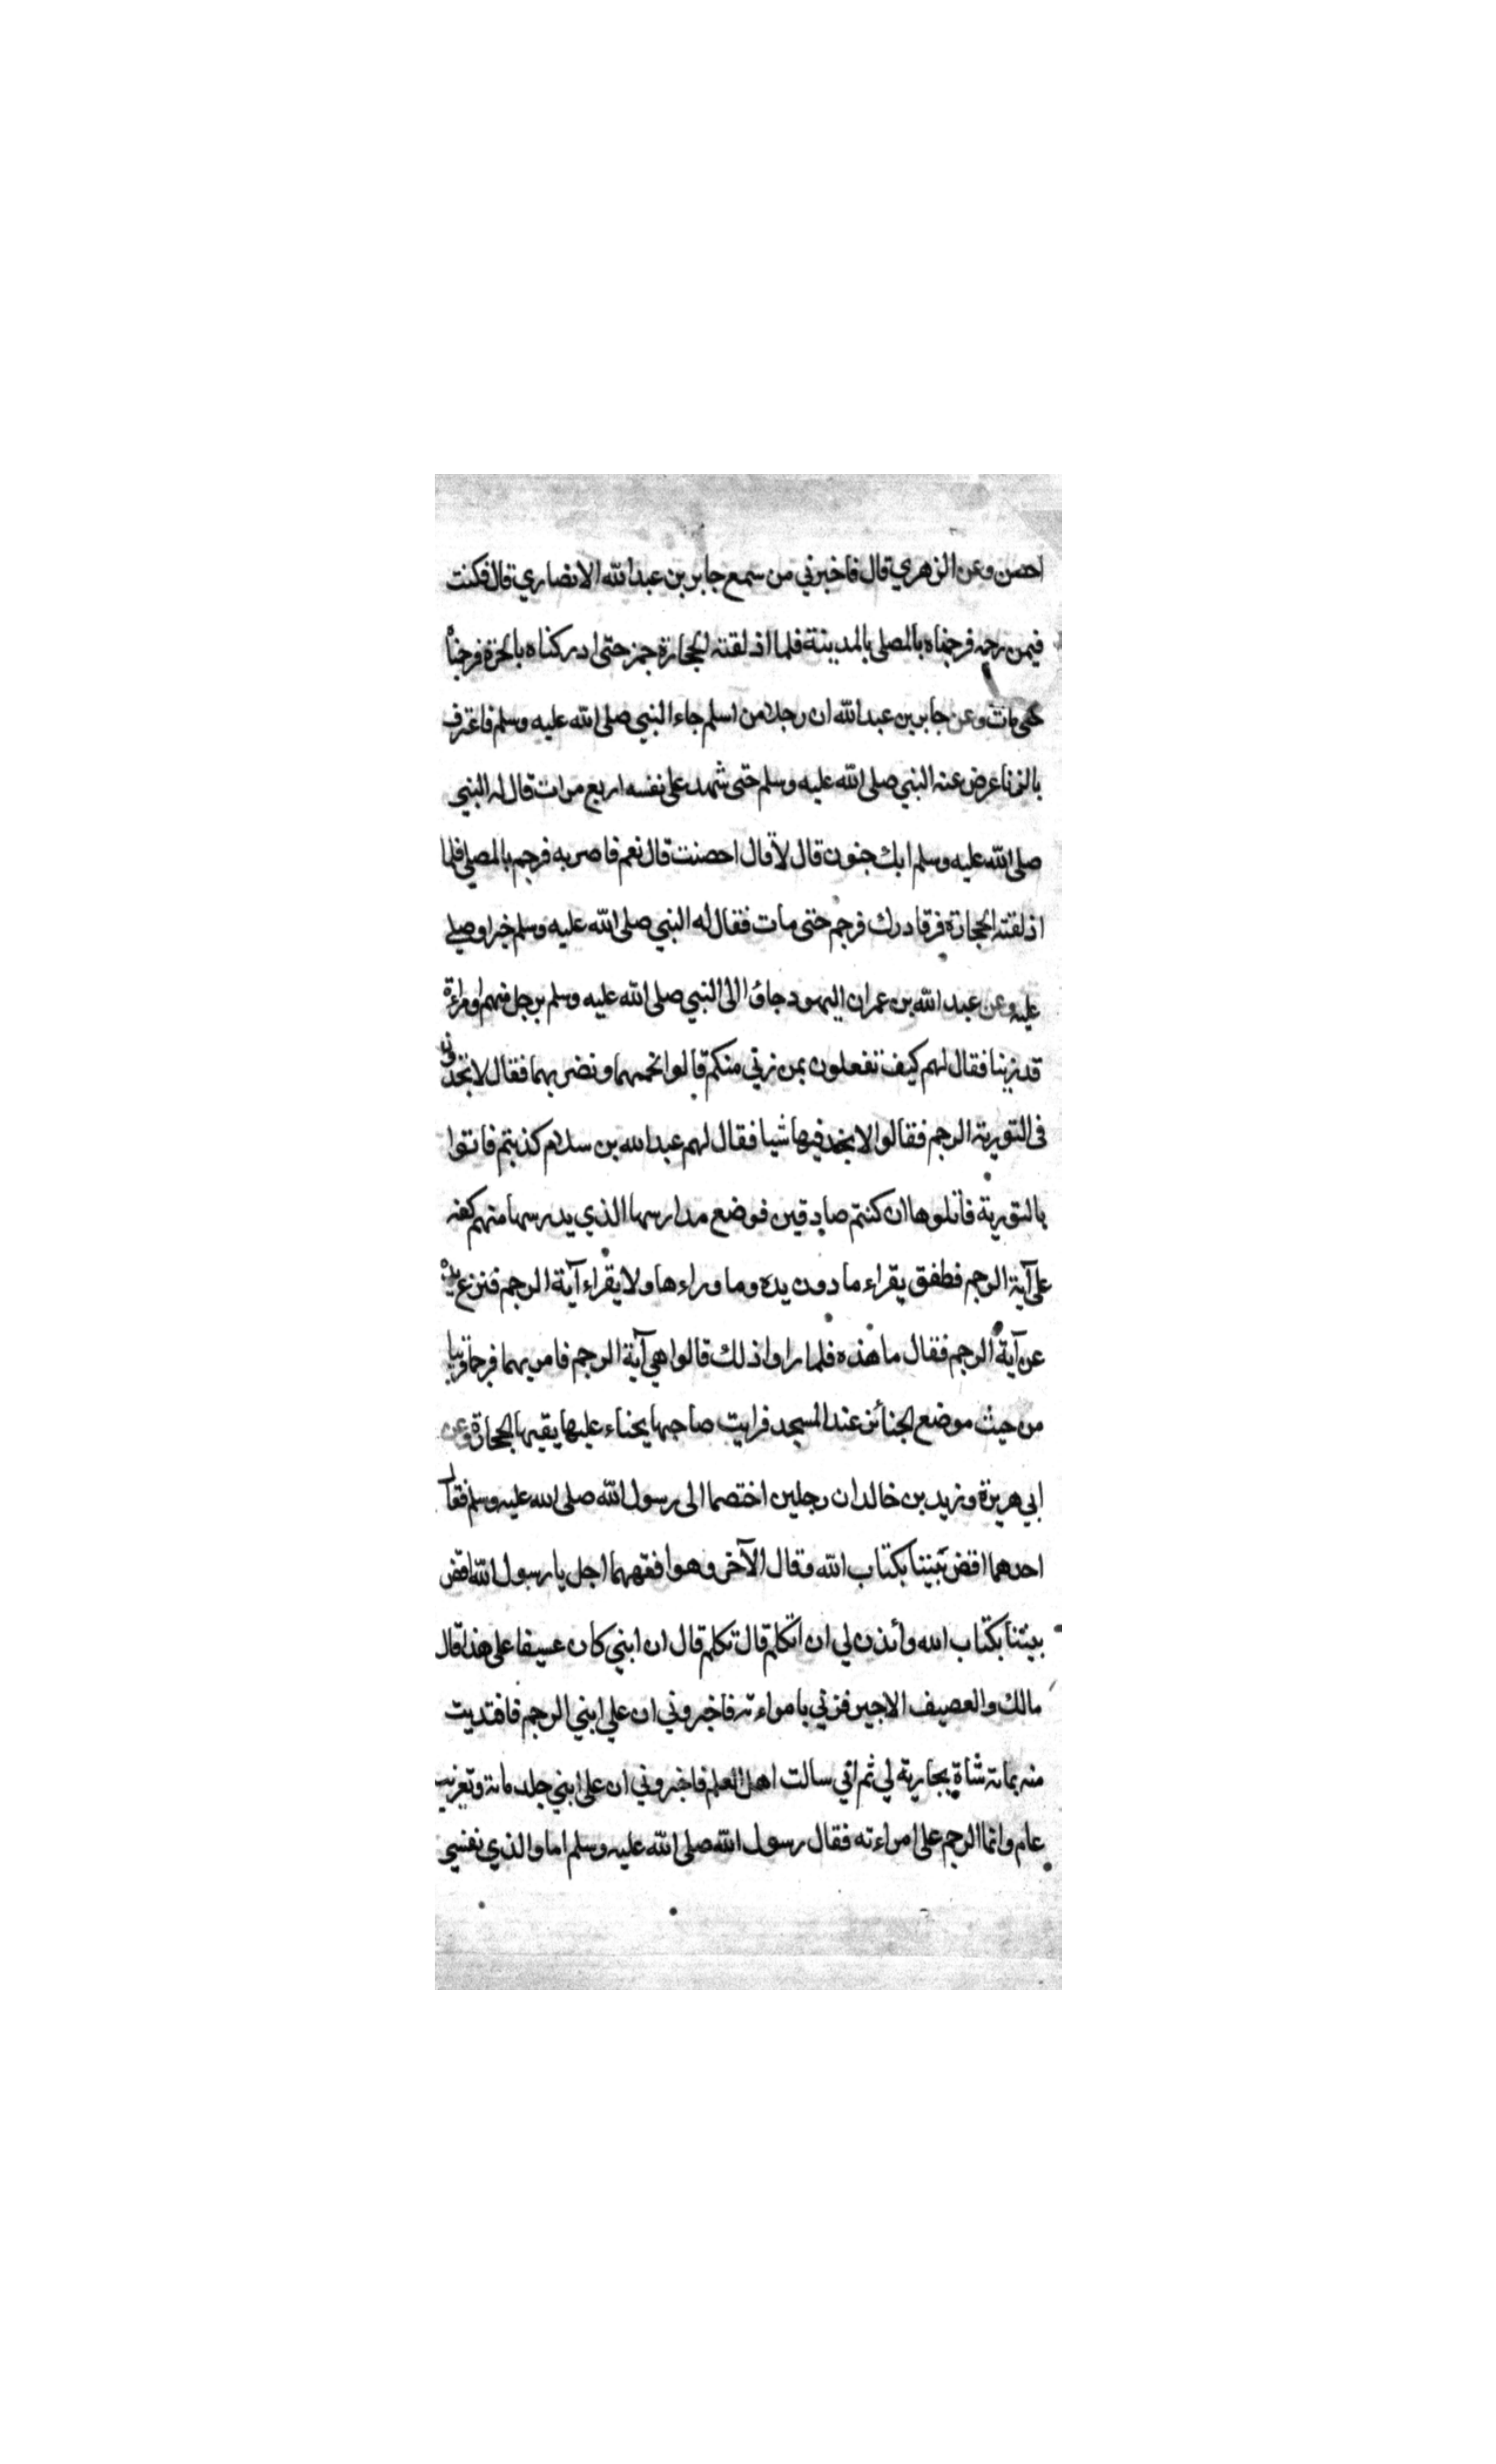 احصن وعن الزهري قال فاخبرني من سمع جابر بن عبدالله الانصاري قال فكنت
فيمن رجمه فرجمناه بالمصلى بالمدينة فلما اذلقته الحجارة جمز حتى ادركناه بالحرة فرجمناه
حتى مات وعن جابر بن عبدالله ان رجلا من اسلم جاء النبي صلى الله عليه وسلم فاعترف
بالزنا عرض عنه النبي صلى الله عليه وسلم حتى شهد على نفسه اربع مرات قال له النبي
صلى الله عليه وسلم ابك جنون قال لا قال احصنت قال نعم فاصر به فرجم بالمصلى فلما
اذلقته الحجارة فر فادرك فرجم حتى مات فقال له النبي صلى الله عليه وسلم خيرا وصلى
عليه وعن عبد الله بن عمر ان اليهود جاؤا الى النبي صلى الله عليه وسلم برجل منهم وامراءة
قد زنيا فقال لهم كيف تفعلون بمن زنى منكم قالوا نحممهما ونضربهما فقال لا تجدون
فى التورية الرجم فقالوا لا نجد فيها شيا فقال لهم عبدالله بن سلام كذبتم فاتوا
بالتورية فاتلوها ان كنتم صادقين فوضع مدارسها الذي يدرسها منهم كفه
على آية الرجم فطفق يقراء ما دون يده وما وراءها ولا يقراء آية الرجم فنزع يده
عن آية الرجم فقال ما هذه فلما راوا ذلك قالوا هي آية الرجم فامر بهما فرجما قريبا
من حيث موضع الجنائز عند المسجد فرايت صاحبها يحناء عليها يقيها الحجارة وعن
ابي هريرة وزيد بن خالد ان رجلين اختصما الى رسول الله صلى الله عليه وسلم فقال
احدهما اقض بيننا بكتاب الله وقال الآخر وهو افقههما اجل يا رسول الله اقض
بيننا بكتاب الله وأئذن لي ان اتكلم قال تكلم قال ان ابني كان عسيفا على هذا قال
مالك والعصيف الاجير فزني بامراءته فاخبروني ان علي ابني الرجم فافتديت
منه بمائة شاة بجارية لي ثم اني سالت اهل العلم فاخبروني ان على ابني جلد مائة وتغريب
عام وانما الرجم على امراءته فقال رسول الله صلى الله عليه وسلم اما والذي نفسي